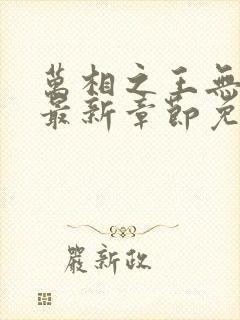 萬相之王無
最新章節免
嚴新政